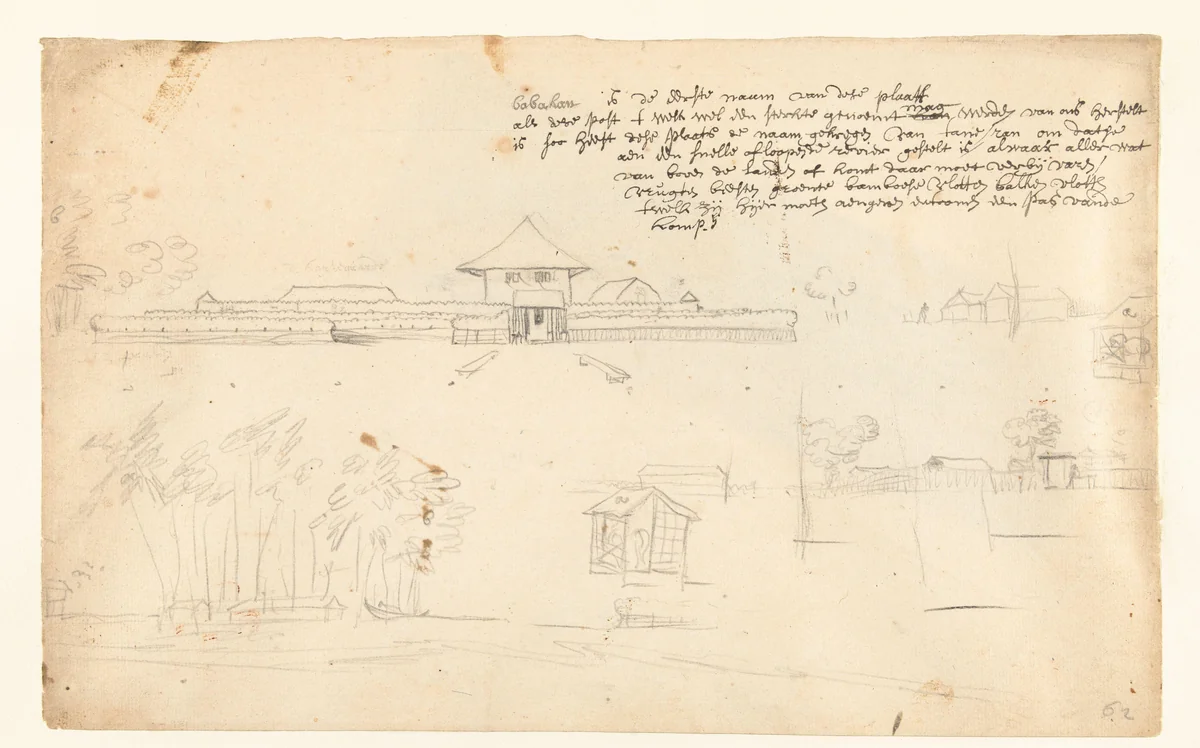 babakan is de eerste naam van dese plaatß
als dese post t welk wel een sterkte genoemt mag werden van ons herstelt
is soo heeft dese plaats de naam gekregen van tans ran om dathe
aen een snelle afloopende revier gestelt is alwaar alles wat
van boven de landen af komt daar moet verbij varen
vrugten beesten groente bamboese vlotten balken vlotten
twelk zij hier moeten aengeven een pas vande
komp.
a
a
62